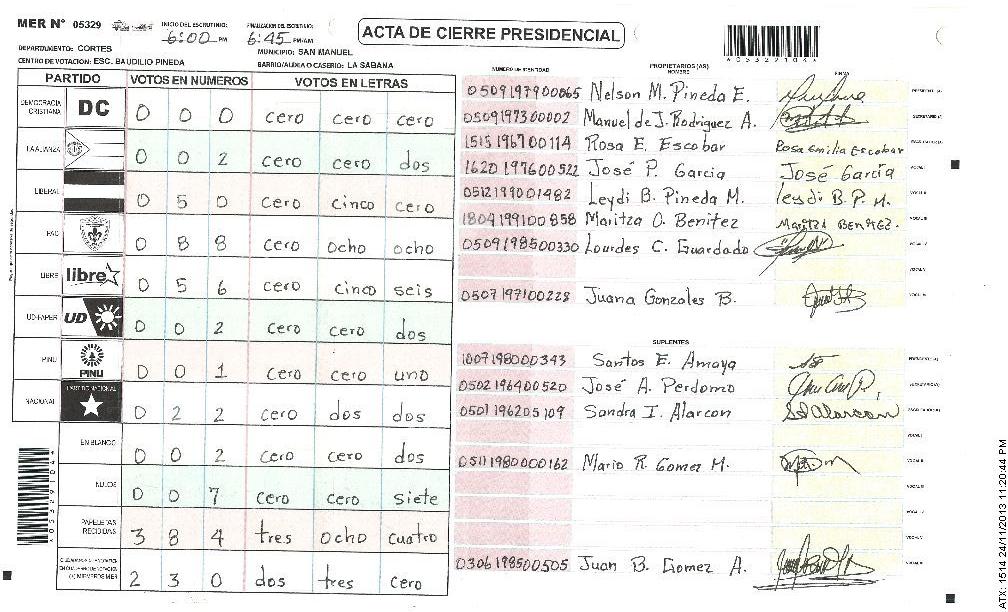 MER Nº 05329
INICIO DEL ESCRUTINIO: 6:00 PM
FINALIZACION DEL ESCRUTINIO: 6:45 PM/AM
ACTA DE CIERRE PRESIDENCIAL
*05329104*
DEPARTAMENTO: CORTES
MUNICIPIO: SAN MANUEL
CENTRO DE VOTACION: ESC. BAUDILIO PINEDA
BARRIO/ALDEA O CASERIO: LA SABANA
PARTIDO VOTOS EN NUMEROS VOTOS EN LETRAS
DEMOCRACIA CRISTIANA DC 0 0 0 cero cero cero
LA ALIANZA 0 0 2 cero cero dos
LIBERAL 0 5 0 cero cinco cero
PAC 0 8 8 cero ocho ocho
LIBRE libre 0 5 6 cero cinco seis
UD-FAPER UD 0 0 2 cero cero dos
PINU PINU 0 0 1 cero cero uno
NACIONAL PARTIDO NACIONAL 0 2 2 cero dos dos
EN BLANCO 0 0 2 cero cero dos
NULOS 0 0 7 cero cero siete
PAPELETAS RECIBIDAS 3 8 4 tres ocho cuatro
2 3 0 dos tres cero
*05329104*
NUMERO DE IDENTIDAD PROPIETARIOS (AS) NOMBRE FIRMA
0509197900065 Nelson M. Pineda E. PRESIDENTE (A)
0509197300002 Manuel de J. Rodriguez A. SECRETARIO (A)
1515196700114 Rosa E. Escobar Rosa Emilia Escobar
1620197600522 José P. Garcia José García VOCAL I
0512199001482 Leydi B. Pineda M. leydi B. P. M. VOCAL II
1804199100858 Maritza O. Benitez Maritza BENITEZ. VOCAL III
0509198500330 Lourdes C. Guardado VOCAL IV
VOCAL V
0507197100228 Juana Gonzales B. VOCAL VI
SUPLENTES
1007198000343 Santos E. Amaya PRESIDENTE (A)
0502196400520 José A. Perdomo SECRETARIO (A)
0501196205109 Sandra I. Alarcon Sd Alarcon
VOCAL I
0511198000162 Mario R. Gomez M. VOCAL II
VOCAL III
VOCAL IV
VOCAL V
0306198500505 Juan B. Gomez A. VOCAL VI
ATX: 1514 24/11/2013 11:20:44 PM